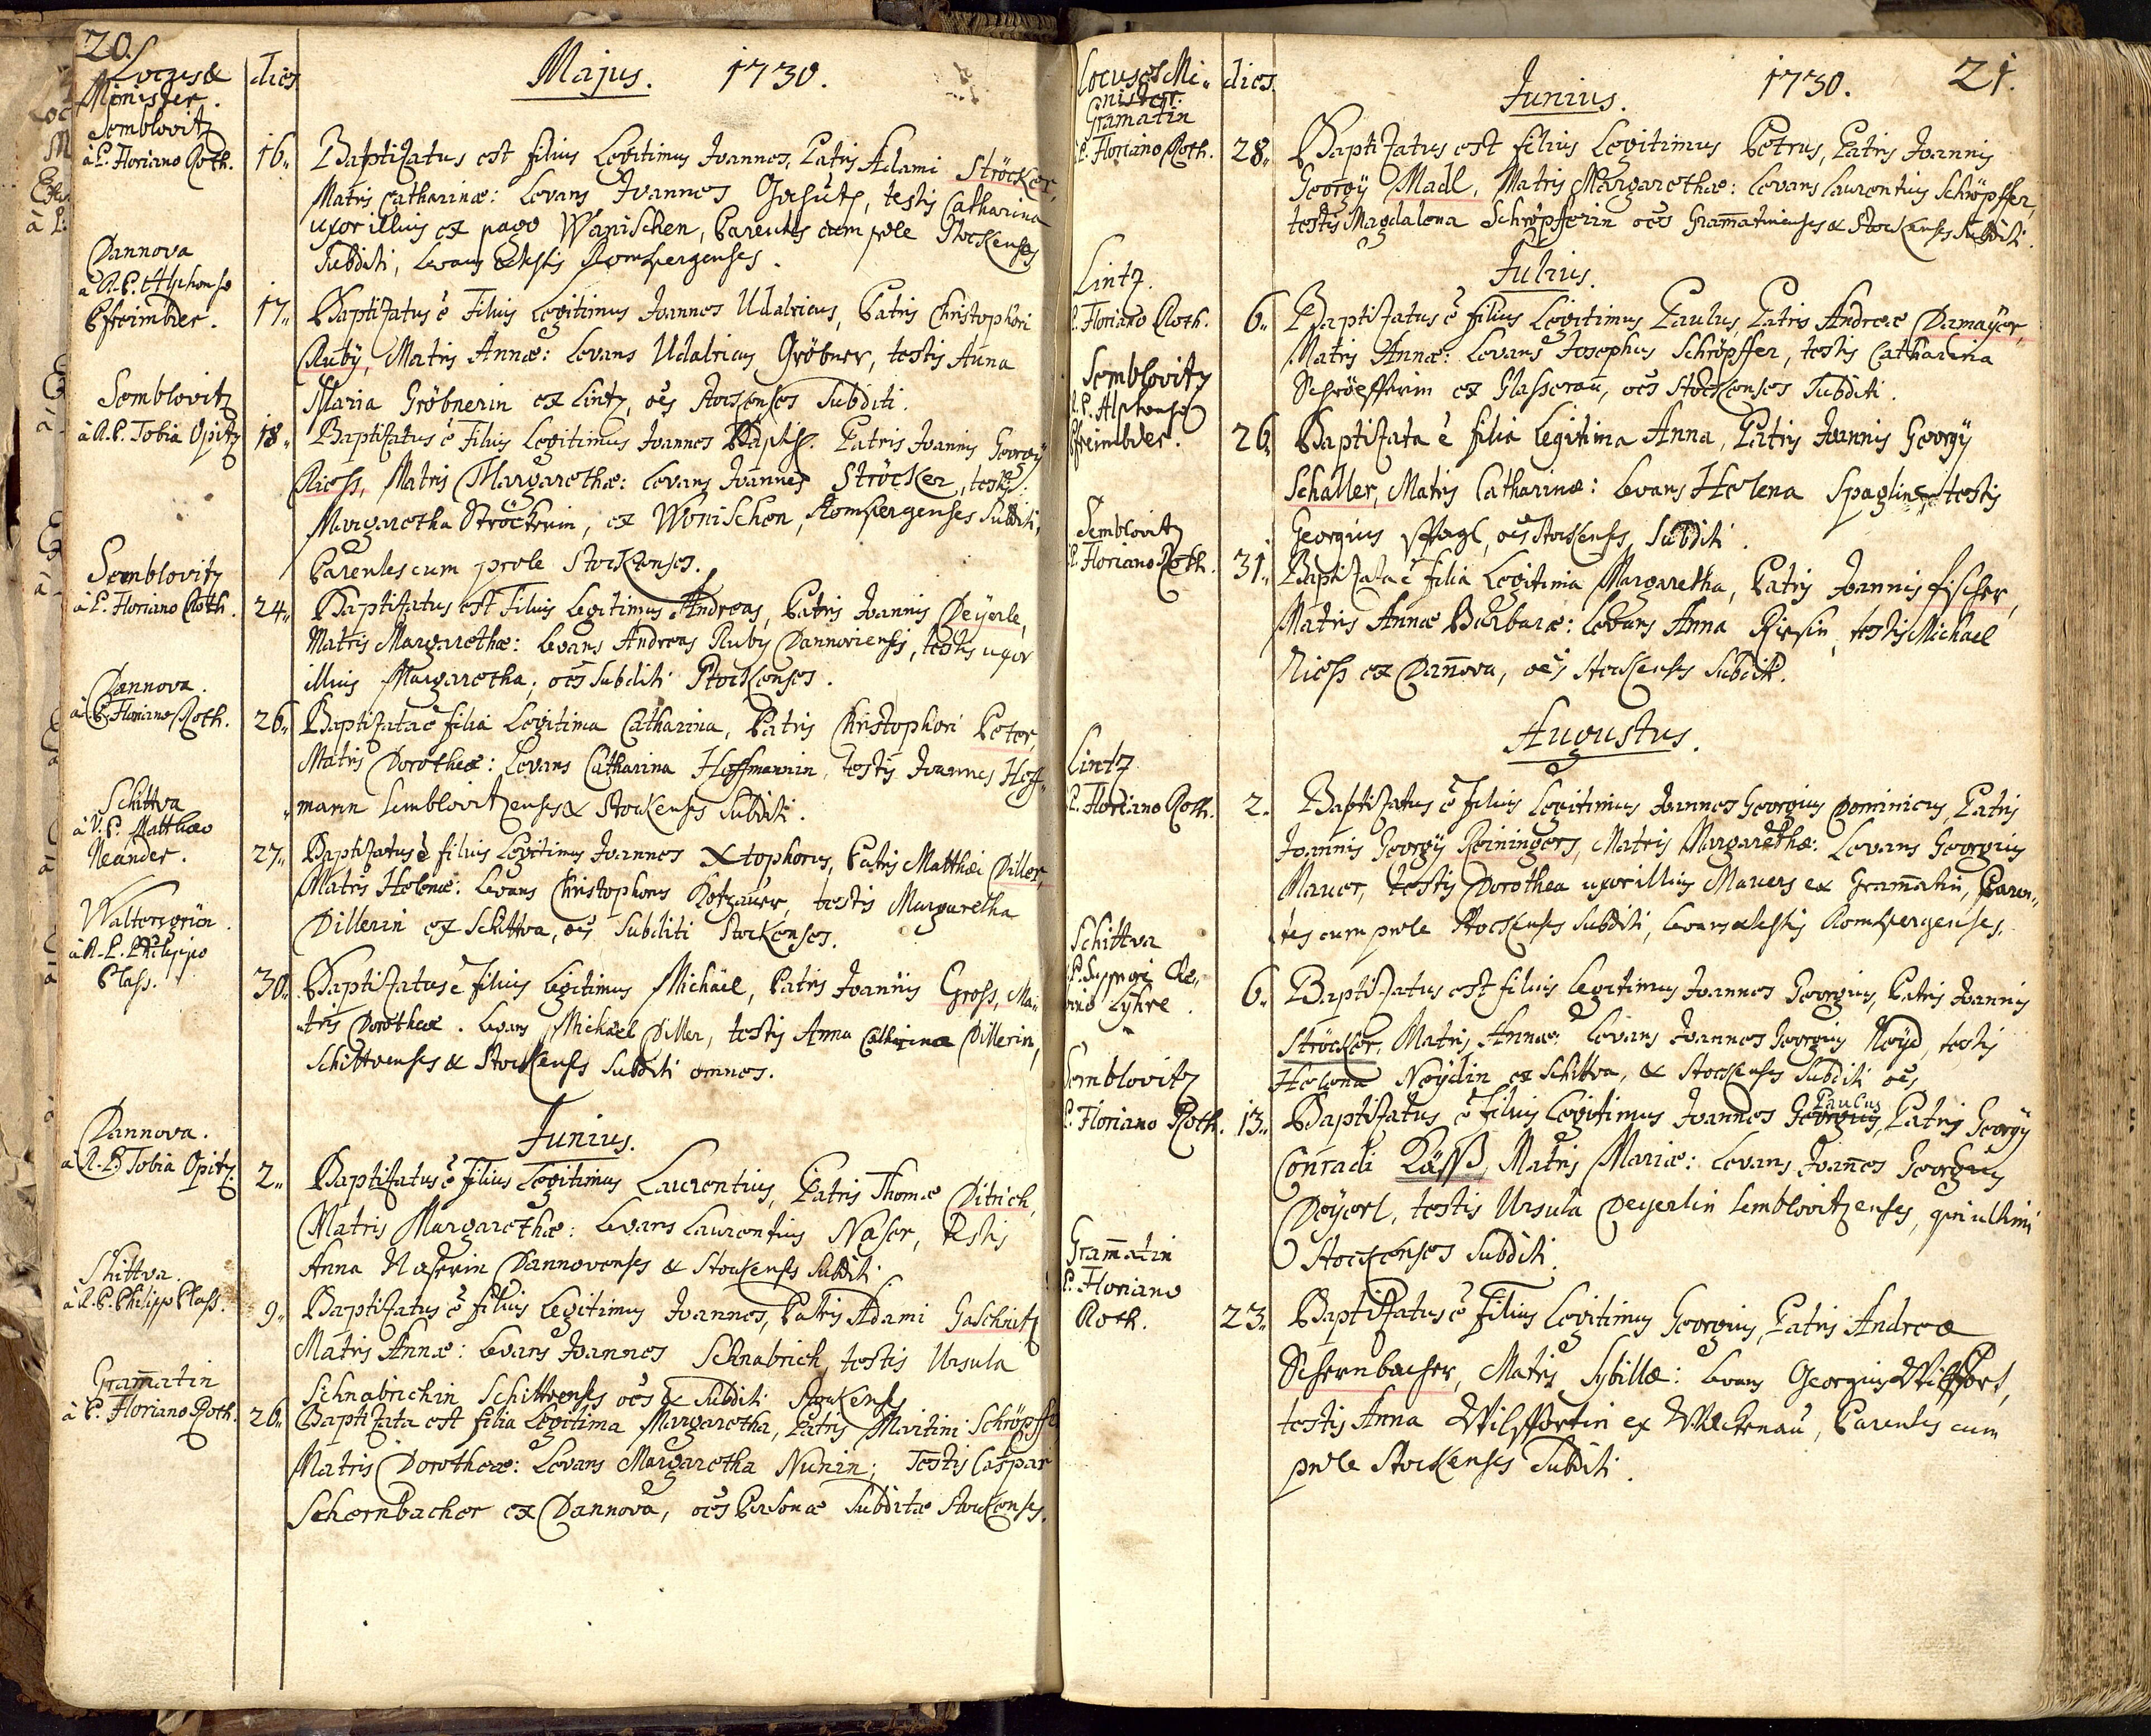 20.
Locus &
Minister.
dies
Majus. 1730.
Semblovitz
à P. Floriano Roth.
16.. Baptizatus est filius Legitimus Joannes, Patris Adami Ströcker,
Matris Catharinæ: Levans Joannes, testis Catharina
uxor illius ex pago Wonischen, Parentes cum prole Stockenses
Subditi, Levans & testis Ronspergenses.
Dannova
a R. P. Alphonso
Pfreimbder.
17.. Baptizatus ē Filius Legitimus Joannes Udalricus, Patris Christophori
Ruby, Matris Annæ: Levans Udalricus Gröbner, testis Anna
Maria Gröbnerin ex Lintz, oēs Stockenses Subditi.
Semblovitz
à R. P. Tobia Opitz
18.. Baptizatus ē Filius Legitimus Joannes Baptist. Patris Joannis Georgÿ
Riess, Matris Margarethæ: Levans Joannes Ströcker, testis
Margaretha Ströckerin, ex Wonischen, Ronspergenses Subditi,
Parentes cum prole Stockenses.
Semblovitz
à P. Floriano Roth.
24.. Baptizatus est Filius Legitimus Andreas, Patris Joannis Deÿerle,
Matris Margarethæ: Levans Andreas Ruby Dannoviensis, testis uxor
illius Margaretha, oēs Subditi Stockenses.
Dannova.
à P. Floriano Roth.
26.. Baptizata ē filia Legitima Catharina, Patris Christophori Peter,
Matris Dorotheæ: Levans Catharina Hoffmannin, testis Joannes Hoff-
mann Semblovitzenses & Stockenses Subditi.
Schittva
à V. P. Matthæo
Neander.
27.. Baptizatus ē filius Legitimus Joannes Xtophorus, Patris Matthæi Diller,
Matris Helenæ: Levans Christophorus Kotzauer, testis Margaretha
Dillerin ex Schittva, oēs Subditi Stockenses.
Waltersgrün.
à R. P. Philippo
Plass.
30.. Baptizatus ē Filius Legitimus Michaël, Patris Joannis Gross, Ma-
tris Dorotheæ. Levans Michael Diller, testis Anna Catharina Dillerin,
Schittvenses & Stockenses Subditi omnes.
Junius.
Dannova.
à R. P. Tobia Opitz.
2.. Baptizatus ē Filius Legitimus Laurentius, Patris Thomæ Ditrich,
Matris Margarethæ: Levans Laurentius Naser, testis
Anna Naserin Dannovenses & Stockenses Subditi.
Shittva.
à R. P. Philippo Plass.
9.. Baptizatus ē filius Legitimus Joannes, Patris Adami Gaschütz
Matris Annæ: Levans Joannes Schnabrich, testis Ursula
Schnabrichin Schittvenses oēs & Subditi Stockenses
Gram̄atin
à P. Floriano Roth.
26.. Baptizata est filia Legitima Margaretha, Patris Martini Schröpffe
Matris Dorotheæ: Levans Margaretha Nunin; Testis Caspar
Schernbacher ex Dannova, oēs Personæ Subditæ Stockenses.
Locus & Mi-
nister.
dies.
Junius. 1730. 21.
Gramatin
P. Floriano Roth.
28.. Baptizatus est filius Legitimus Petrus, Patris Joannis
Georgÿ Madl, Matris Margarethæ: Levans Laurentius Schröpffer,
testis Magdalena Schröpfferin oēs Gram̄atinenses & Stockenses Subditi.
Julius.
Lintz.
P. Floriano Roth.
6.. Baptizatus ē filius Legitimus Paulus, Patris Andreæ Damaÿer,
Matris Annæ: Levans Josephus Schröpffer, testis Catharina
Schröefferin ex Glasserau, oēs Stockenses Subditi.
Semblovitz
R. P. Alphonso
Pfreimbder.
26. Baptizata ē filia Legitima Anna, Patris Joannis Georgÿ
Schaller, Matris Catharinæ: Levans Helena Spaglin, testis
Georgius, oēs Stockenses Subditi.
Semblovitz
P. Floriano Roth.
31.. Baptizata ē filia Legitima Margaretha, Patris Joannis Fischer,
Matris Annæ Barbaræ: Levans Anna Riesin, testis Michael
Riess ex Dan̄ova, oēs Stockenses Subditi.
Augustus.
Lintz
P. Floriano Roth.
2. Baptizatus ē Filius Legitimus Joannes Georgius Dominicus, Patris
Joannis Georgÿ Reiningers, Matris Margarethæ: Levans Georgius
Mauer, testis Dorothea uxor illius Mauers ex Gram̄atin, Paren-
tes cum prole Stockenses Subditi, Levans & testis Ronspergenses.
Schittva
6.. Baptizatus est filius Legitimus Joannes Georgius, Patris Joannis
Ströcker, Matris Annæ: Levans Joannes Georgius Neyd, testis
Helena Neydin ex Schittva, & Stockenses Subditi oēs
Semblovitz
P. Floriano Roth.
Paulus
13.. Baptizatus ē Filius Legitimus Joannes Georgius, Patris Georgÿ
Conradi Käss, Matris Mariæ: Levans Joan̄es Georgius
Deÿerl, testis Ursula Deyerlin Semblovitzenses, qui ultimi
Stockenses Subditi.
Gram̄atin
P. Floriano
Roth.
23.. Baptizatus ē Filius Legitimus Georgius, Patris Andreæ
Schernbacher, Matris Sybillæ: Levans Georgius Wilffert,
testis Anna Wilffertin ex Wacknau, Parentes cum
prole Stockenses Subditi.